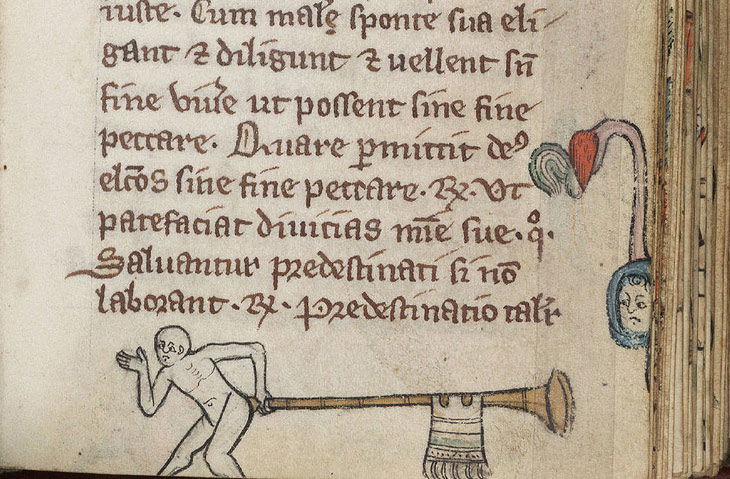 iuste. Cum malę sponte sua eli-
gant ⁊ diligunt ⁊ uellent sñ
fine viu͛e ut possent sine fine
peccare. Quare ꝑmittit deꝰ
elc̃os sine fine peccare. ℞. Ut
patefaciat diuicias mĩe sue. q̊.
Saluantur predestinati si nõ
laborant. ℞. Predestinatio tal͛r